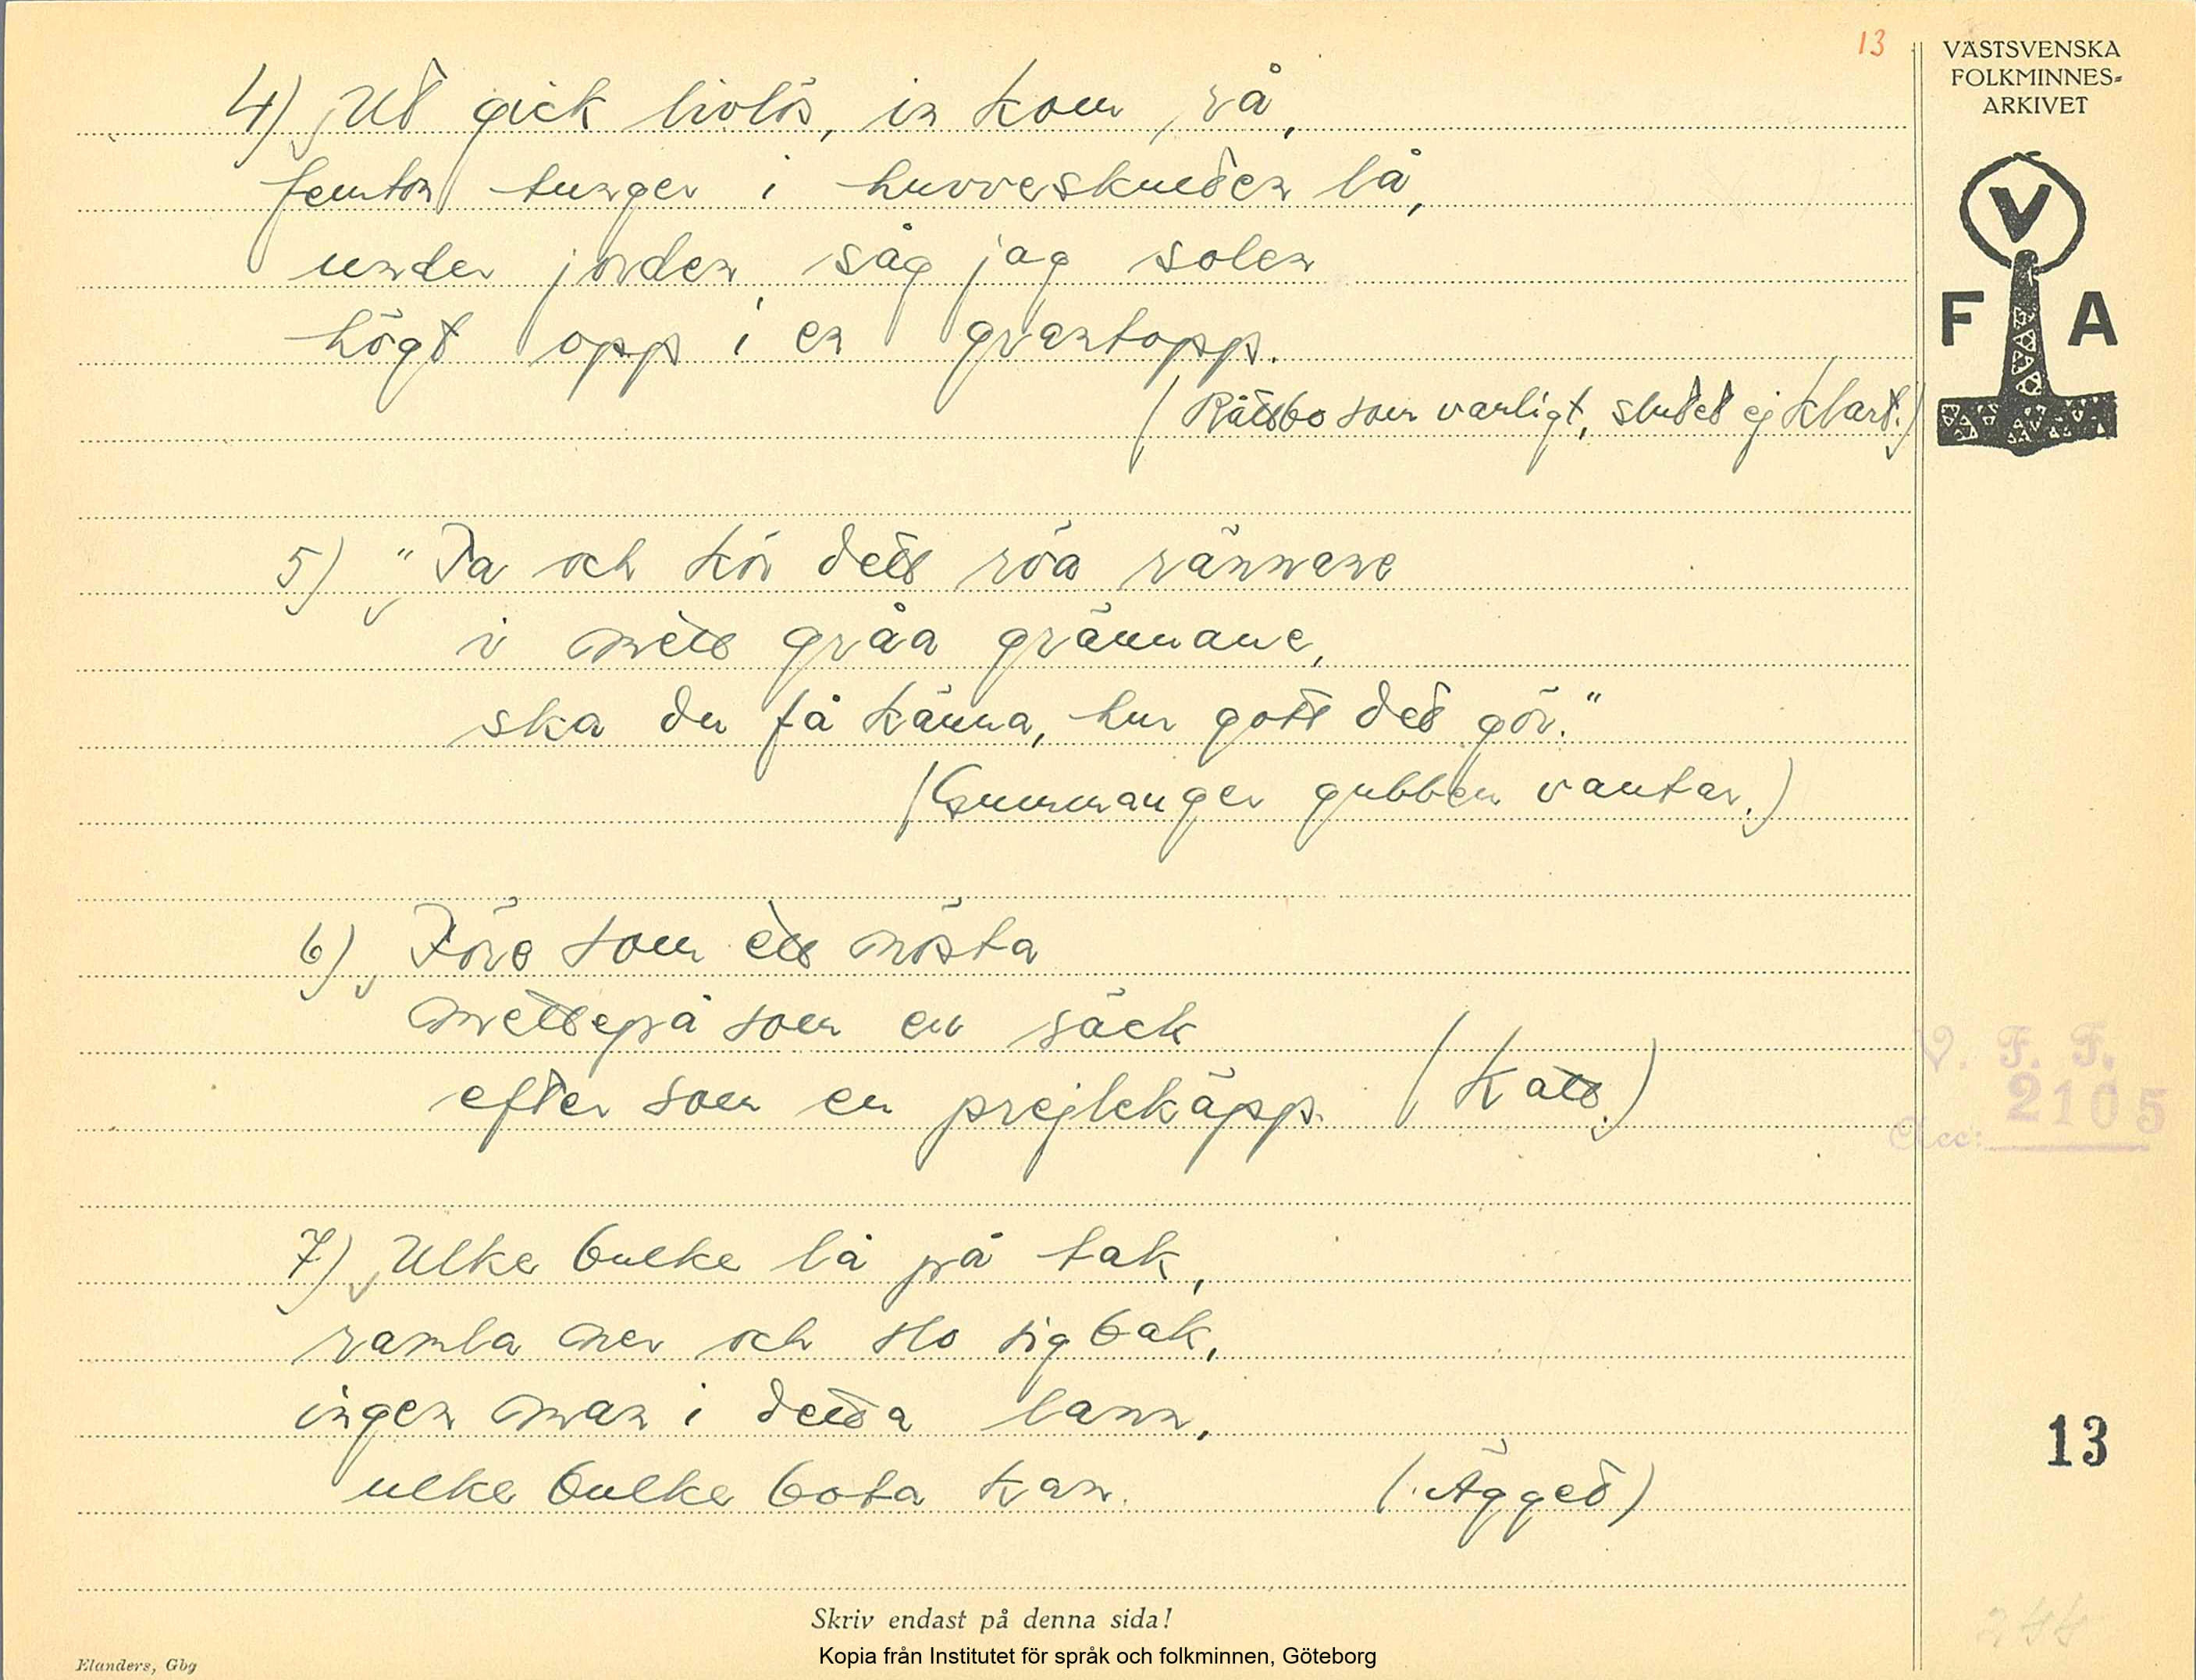 13
VÄSTSVENSKA
FOLKMINNES-
ARKIVET
V
F A
4) Ut gick livlös, in kom rå,
femton tunger i huvveskuden lå,
under jorden såg jag solen
högt opp i en grantopp.
(Råttbo som vanligt, slutet ej klart.)
5) "Ta och kör dett röa rännane
i mett gråa grännane,
ska du få känna, hur gott det gör."
(Gummangen gubben vantar.)
6) Före som ett nösta
mettepå som en säck
efter som en prejlekäpp. (Katt.)
V. F. F.
Acc: 2105
7) Ulke bulke lå på tak,
ramla ner och slo sig bak,
ingen man i detta lann,
ulke bulke bota kan. (Ägget)
13
244
Skriv endast på denna sida!
Kopia från Institutet för språk och folkminnen, Göteborg
Elanders, Gbg